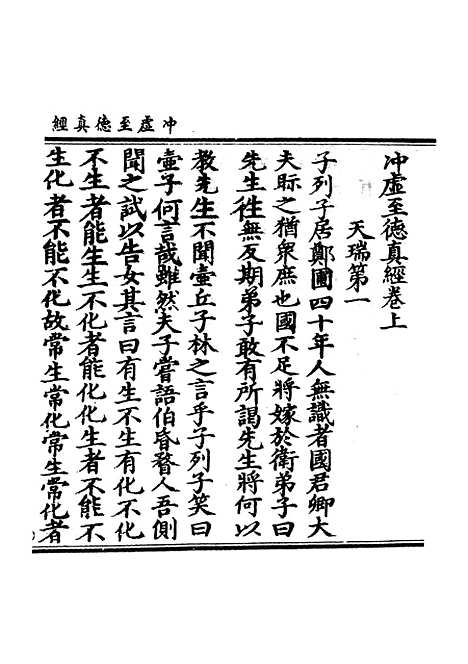 冲虛至德真經
冲虛至德真經卷上
天瑞第一
子列子居鄭圃四十年人無識者國君卿大
夫眎之猶衆庶也國不足將嫁於衛弟子曰
先生徃無反期弟子敢有所謁先生將何以
教先生不聞壷丘子林之言乎子列子笑曰
壷子何言哉雖然夫子嘗語伯昬瞀人吾側
聞之試以告女其言曰有生不生有化不化
不生者能生生不化者能化化生者不能不
生化者不能不化故常生常化常生常化者